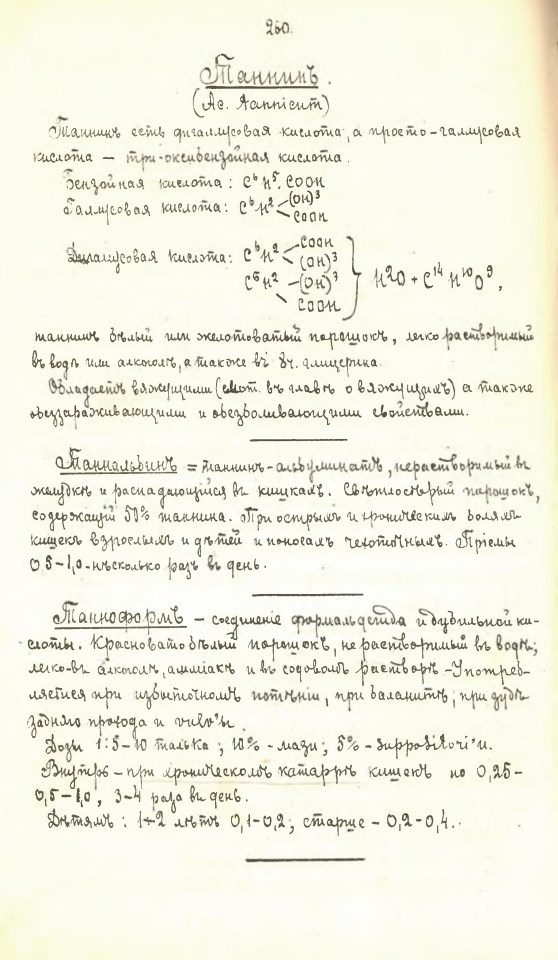 260.
Таннинъ.
(Ac. tannicum)
Таннинъ есть дигаллусовая кислота, а просто-галлусовая
кислота — три-оксибензойная кислота.
Бензойная кислота: C⁶H⁵.COOH
Галлусовая кислота: C⁶H² (OH)³
COOH
Дигаллусовая кислота: C⁶H² COOH
(OH)³
C⁶H² (OH)³
COOH
} H2O + C¹⁴H¹⁰O⁹,
таннинъ бѣлый или желтоватый порошокъ, легко растворимый
въ водѣ или алкоголѣ, а также въ 8 ч. глицерина.
Обладаетъ вяжущими (смот. въ главѣ о вяжущихъ) а также
обеззараживающими и обезболивающими свойствами.
Танналбинъ = таннинъ-альбуминатъ, нерастворимый въ
желудкѣ и распадающійся въ кишкахъ. Свѣтлосѣрый порошокъ,
содержащій 50% таннина. При острыхъ и хроническихъ боляхъ
кишекъ взрослыхъ и дѣтей и поносахъ чахоточныхъ. Пріемы
0,5-1,0-нѣсколько разъ въ день.
Танноформъ — соединеніе формальдегида и дубильной ки-
слоты. Красновато бѣлый порошокъ, не растворимый въ водѣ;
легко-въ алкоголѣ, амміакѣ и въ содовомъ растворѣ - Употреб-
ляется при избыточномъ потѣніи, при баланитѣ; при зудѣ
задняго прохода и vulv'ы.
Дозы 1:5-10 талька; 10% -мази; 5% -suppositori'и.
Внутрь - при хроническомъ катаррѣ кишекъ по 0,25-
0,5-1,0, 3-4 раза въ день.
Дѣтямъ: 1-2 лѣтъ 0,1-0,2; старше - 0,2-0,4.